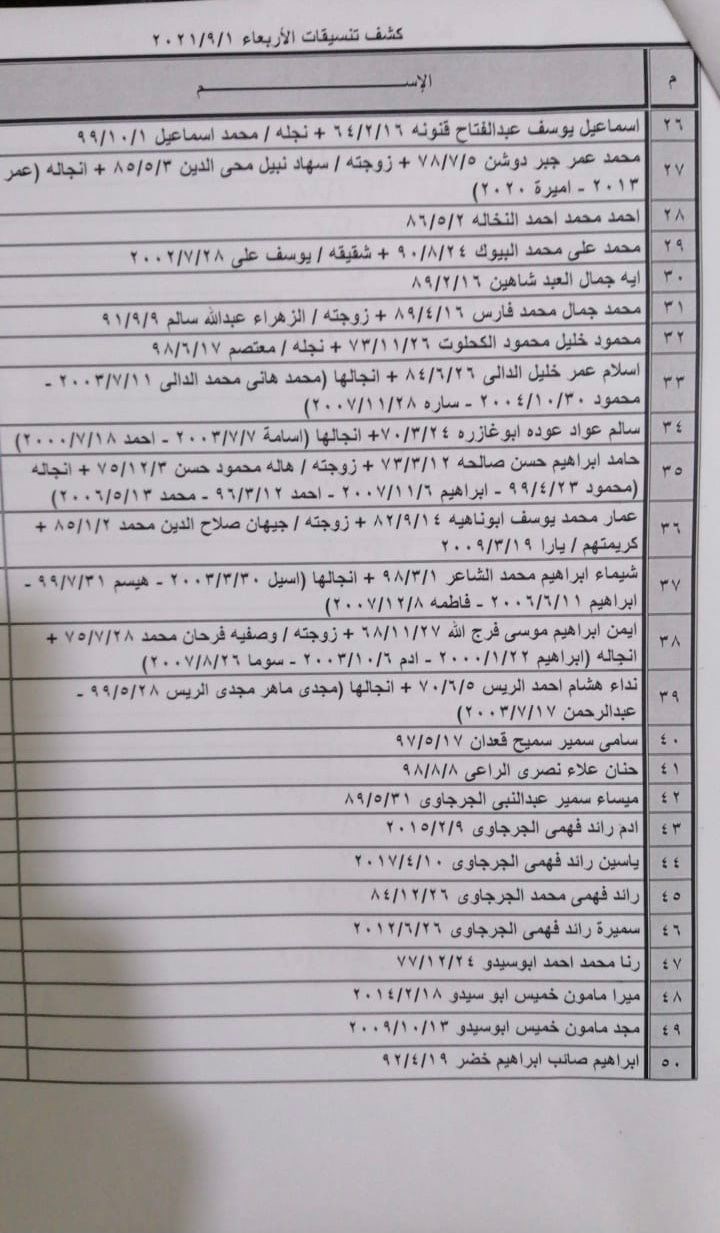 كشف تنسيقات الأربعاء ٢٠٢١/٩/١
م الإســـــــــم
٢٦ اسماعيل يوسف عبدالفتاح قنونه ٦٤/٢/١٦ + نجله / محمد اسماعيل ٩٩/١٠/١
٢٧ محمد عمر جبر دوشن ٧٨/٧/٥ + زوجته / سهاد نبيل محى الدين ٨٥/٥/٣ + انجاله (عمر
٢٠١٣ - اميرة ٢٠٢٠)
٢٨ احمد محمد احمد النخاله ٨٦/٥/٢
٢٩ محمد على محمد البيوك ٩٠/٨/٢٤ + شقيقه / يوسف على ٢٠٠٢/٧/٢٨
٣٠ ايه جمال العبد شاهين ٨٩/٢/١٦
٣١ محمد جمال محمد فارس ٨٩/٤/١٦ + زوجته / الزهراء عبدالله سالم ٩١/٩/٩
٣٢ محمود خليل محمود الكحلوت ٧٣/١١/٢٦ + نجله / معتصم ٩٨/٦/١٧
٣٣ اسلام عمر خليل الدالى ٨٤/٦/٢٦ + انجالها (محمد هانى محمد الدالى ٢٠٠٣/٧/١١ -
محمود ٢٠٠٤/١٠/٣٠ - ساره ٢٠٠٧/١١/٢٨)
٣٤ سالم عواد عوده ابوغازره ٧٠/٣/٢٤+ انجالها (اسامة ٢٠٠٣/٧/٧ - احمد ٢٠٠٠/٧/١٨)
٣٥ حامد ابراهيم حسن صالحه ٧٣/٣/١٢ + زوجته / هاله محمود حسن ٧٥/١٢/٣ + انجاله
(محمود ٩٩/٤/٢٣ - ابراهيم ٢٠٠٧/١١/٦ - احمد ٩٦/٣/١٢ - محمد ٢٠٠٦/٥/١٣)
٣٦ عمار محمد يوسف ابوناهيه ٨٢/٩/١٤ + زوجته / جيهان صلاح الدين محمد ٨٥/١/٢ +
كريمتهم / يارا ٢٠٠٩/٣/١٩
٣٧ شيماء ابراهيم محمد الشاعر ٩٨/٣/١ + انجالها (اسيل ٢٠٠٣/٣/٣٠ - هيسم ٩٩/٧/٣١ -
ابراهيم ٢٠٠٦/٦/١١ - فاطمه ٢٠٠٧/١٢/٨)
٣٨ ايمن ابراهيم موسى فرج الله ٦٨/١١/٢٧ + زوجته / وصفيه فرحان محمد ٧٥/٧/٢٨ +
انجاله (ابراهيم ٢٠٠٠/١/٢٢ - ادم ٢٠٠٣/١٠/٦ - سوما ٢٠٠٧/٨/٢٦)
٣٩ نداء هشام احمد الريس ٧٠/٦/٥ + انجالها (مجدى ماهر مجدى الريس ٩٩/٥/٢٨ -
عبدالرحمن ٢٠٠٣/٧/١٧)
٤٠ سامى سمير سميح قعدان ٩٧/٥/١٧
٤١ حنان علاء نصرى الراعى ٩٨/٨/٨
٤٢ ميساء سمير عبدالنبى الجرجاوى ٨٩/٥/٣١
٤٣ ادم رائد فهمى الجرجاوى ٢٠١٥/٢/٩
٤٤ ياسين رائد فهمى الجرجاوى ٢٠١٧/٤/١٠
٤٥ رائد فهمى محمد الجرجاوى ٨٤/١٢/٢٦
٤٦ سميرة رائد فهمى الجرجاوى ٢٠١٢/٦/٢٦
٤٧ رنا محمد احمد ابوسيدو ٧٧/١٢/٢٤
٤٨ ميرا مامون خميس ابو سيدو ٢٠١٤/٢/١٨
٤٩ مجد مامون خميس ابوسيدو ٢٠٠٩/١٠/١٣
٥٠ ابراهيم صائب ابراهيم خضر ٩٢/٤/١٩